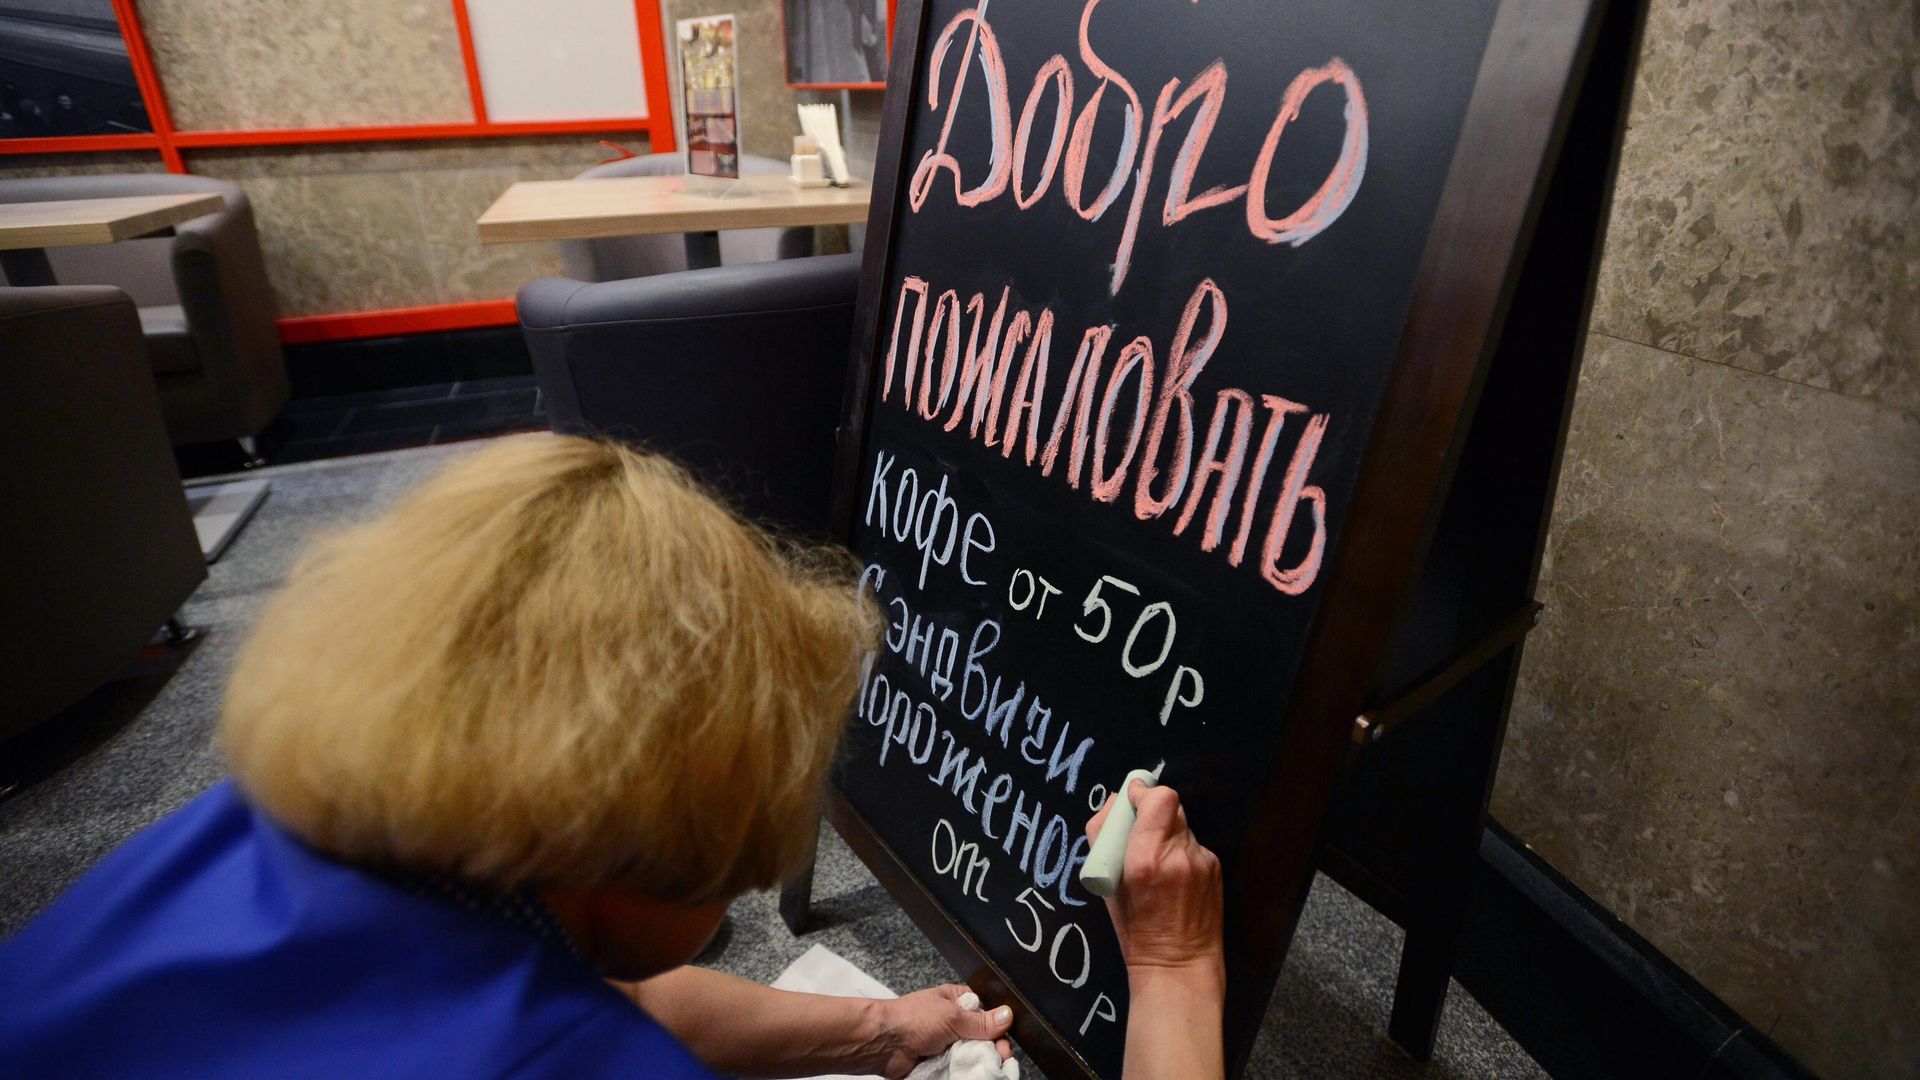 Добро
пожаловать
Кофе от 50р
Сэндвичи
Мороженое
от 50р